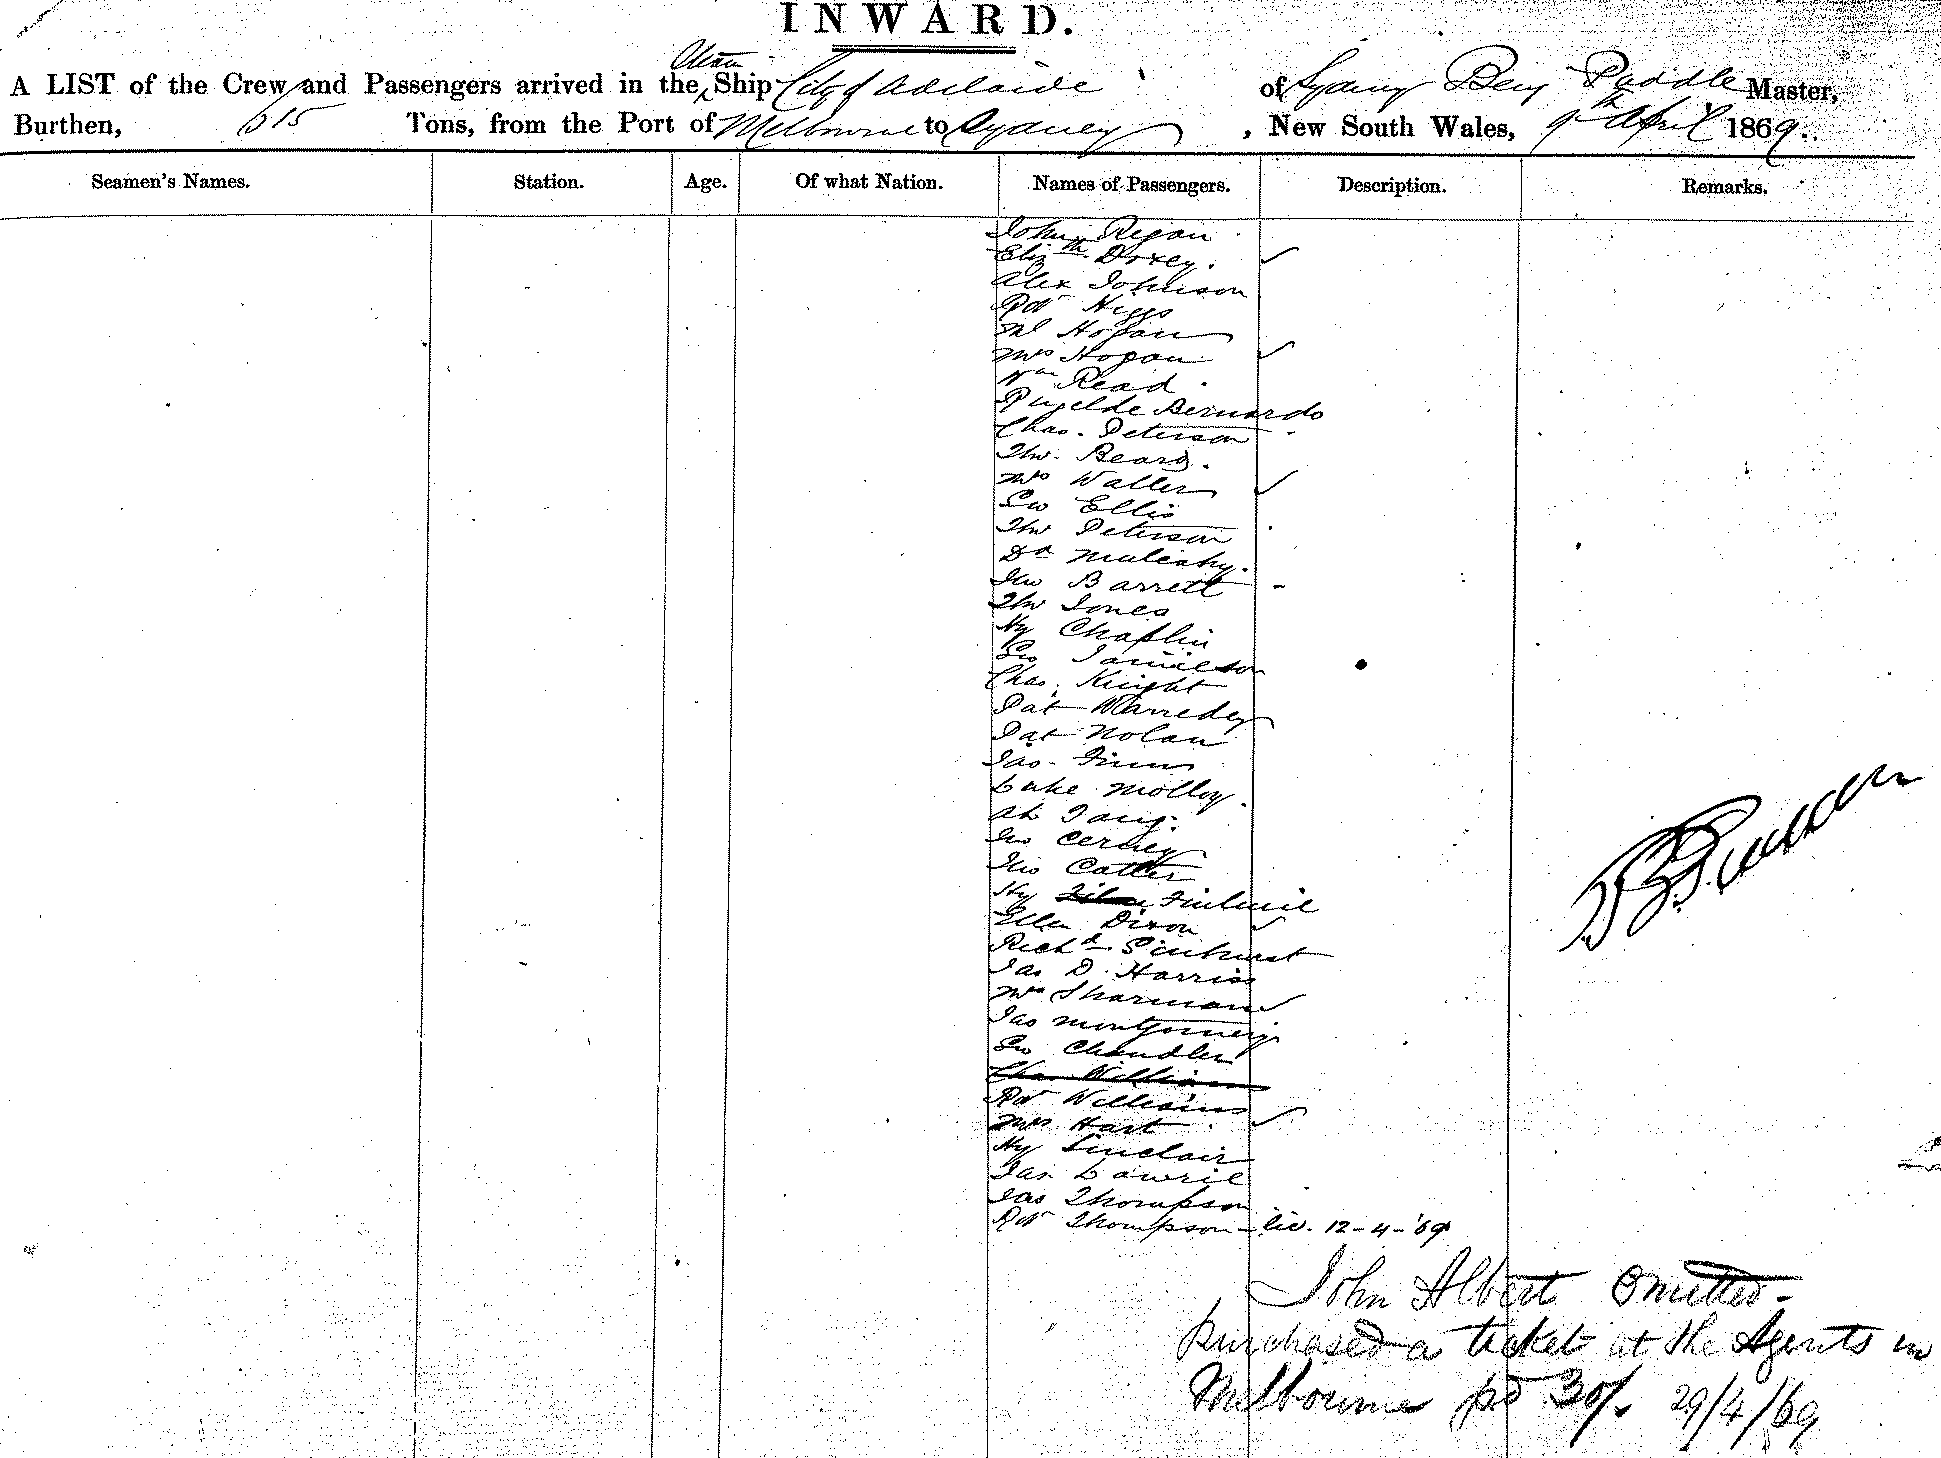 INWARD.
Steam
A LIST of the Crew and Passengers arrived in the Ship City of Adelaide of Sydney Benj Paddle Master,
Burthen, 615 Tons, from the Port of Melbourne to Sydney, New South Wales, 9th April 1869.
Seamen's Names. Station. Age. Of what Nation. Names of Passengers. Description. Remarks.
John Regan
Elizth Doxey.
Alex Johnson
Rot Higgs
Ml Hogan
Mrs Hogan
Wm Read
Bernardo
Chas. Peterson
Tho. Beard.
Mrs Waller
Geo Ellis
Tho Peterson
Dd Mulcahy.
Jno Barrett
Tho Jones
Hy Chaplin
Geo Jamieson
Chas. Knight
Pat
Pat Nolan
Jas. Finn
Luke Molloy.
Ah
Jno Cerney
Jno Catler
Hy
Ellen Dixon
Richd
Jas D. Harris
Mrs Sharman
Jas Montgomery
Geo Chandler
Chas Williams
Rot Williams
Mrs Hart
Hy Sinclair
Jas. Lawrie
Jas Thompson
Rot Thompson - 12-4-'69
John Albert Omitted-
purchased a ticket at the Agents in
Melbourne pd 30/. 29/4/69